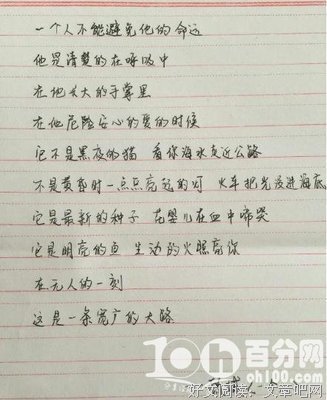 一个人不能避免他的命运
他是清楚的在呼吸中
在他长大的手掌里
在他危险安心的爱的时候
它不是黑夜的猫 看你海水走近公路
不是黄昏时一点点亮起的灯 火车把光没进海底
它是最新的种子 婴儿在血中啼哭
它是明亮的 生动的火照亮你
在无人的一刻
这是一条宽广的大路
百分网
好文阅读 文章吧网